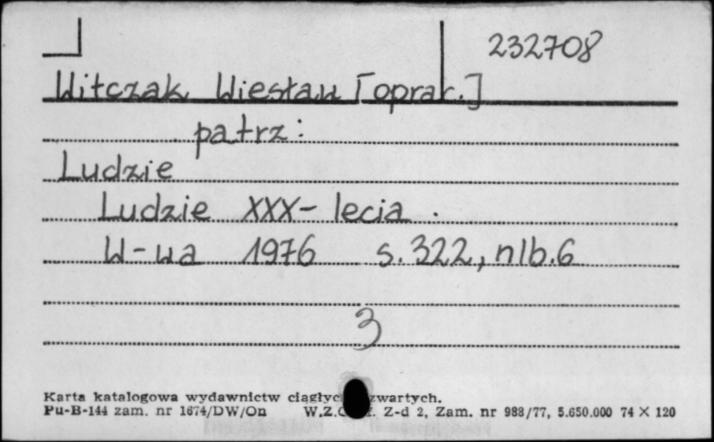 232708
Witczak Wiesław [oprac.]
patrz:
Ludzie
Ludzie XXX-lecia.
W-wa 1976 s. 322, nlb. 6
3
Karta katalogowa wydawnictw ciągłyc zwartych.
Pu-B-144 zam. nr 1674/DW/On W.Z. Z-d 2, Zam. nr 988/77, 5.650.000 74 × 120